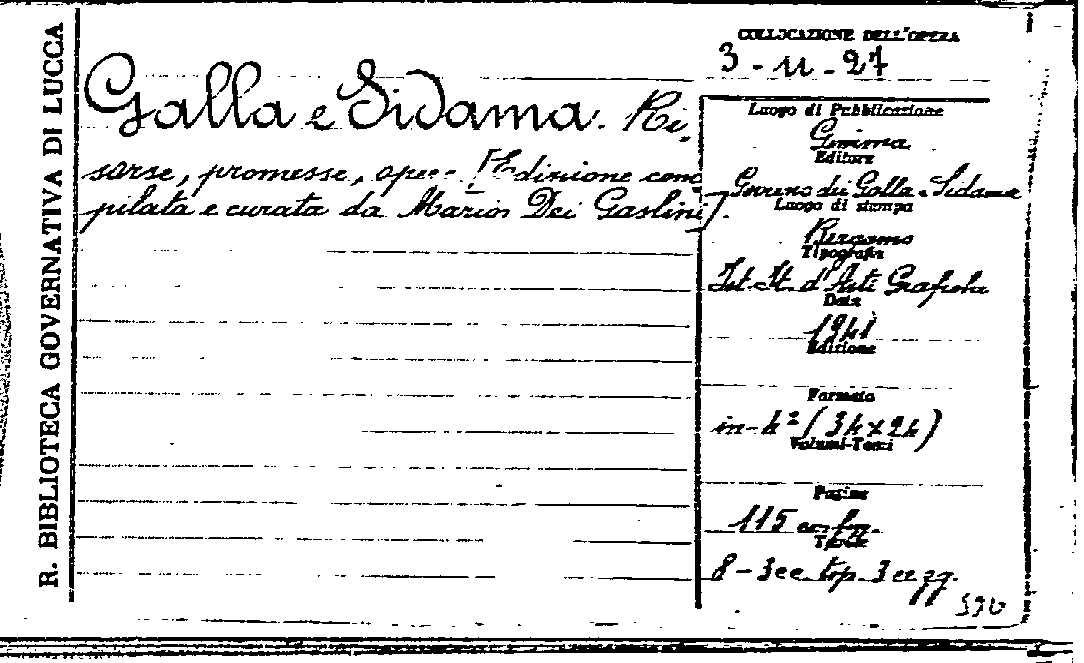 R. BIBLIOTECA GOVERNATIVA DI LUCCA
COLLOCAZIONE DELL'OPERA
3 - 11 - 27
Galla e Sidama. Ri,
sorse, promesse, opere [Edizione com
pilata e curata da Mario Dei Gaslini].
Luogo di Pubblicazione
Gimma
Editore
Governo dei Galla e Sidama
Luogo di stampa
Bergamo
Tipografia
Ist. It. d'Arti Grafiche
Data
1941
Edizione
Formato
in-4º (34x24)
Volumi-Tomi
Pagine
115 con fig.
Tavole
8 - 3 cc. top. 3 cc gg.